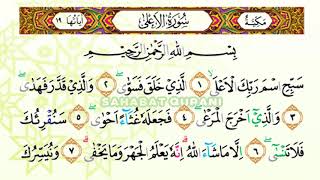 مَكِّيَّةٌ سُوْرَةُ الْاَعْلٰى اٰيَاتُهَا ١٩
بِسْمِ اللّٰهِ الرَّحْمٰنِ الرَّحِيْمِ
سَبِّحِ اسْمَ رَبِّكَ الْاَعْلَىۙ ١ الَّذِيْ خَلَقَ فَسَوّٰىۖ ٢ وَالَّذِيْ قَدَّرَ فَهَدٰىۖ
٣ وَالَّذِيْٓ اَخْرَجَ الْمَرْعٰىۖ ٤ فَجَعَلَهٗ غُثَاۤءً اَحْوٰىۖ ٥ سَنُقْرِئُكَ
فَلَا تَنْسٰىٓۖ ٦ اِلَّا مَا شَاۤءَ اللّٰهُ ۗاِنَّهٗ يَعْلَمُ الْجَهْرَ وَمَا يَخْفٰىۗ ٧ وَنُيَسِّرُكَ
SAHABAT QURANI